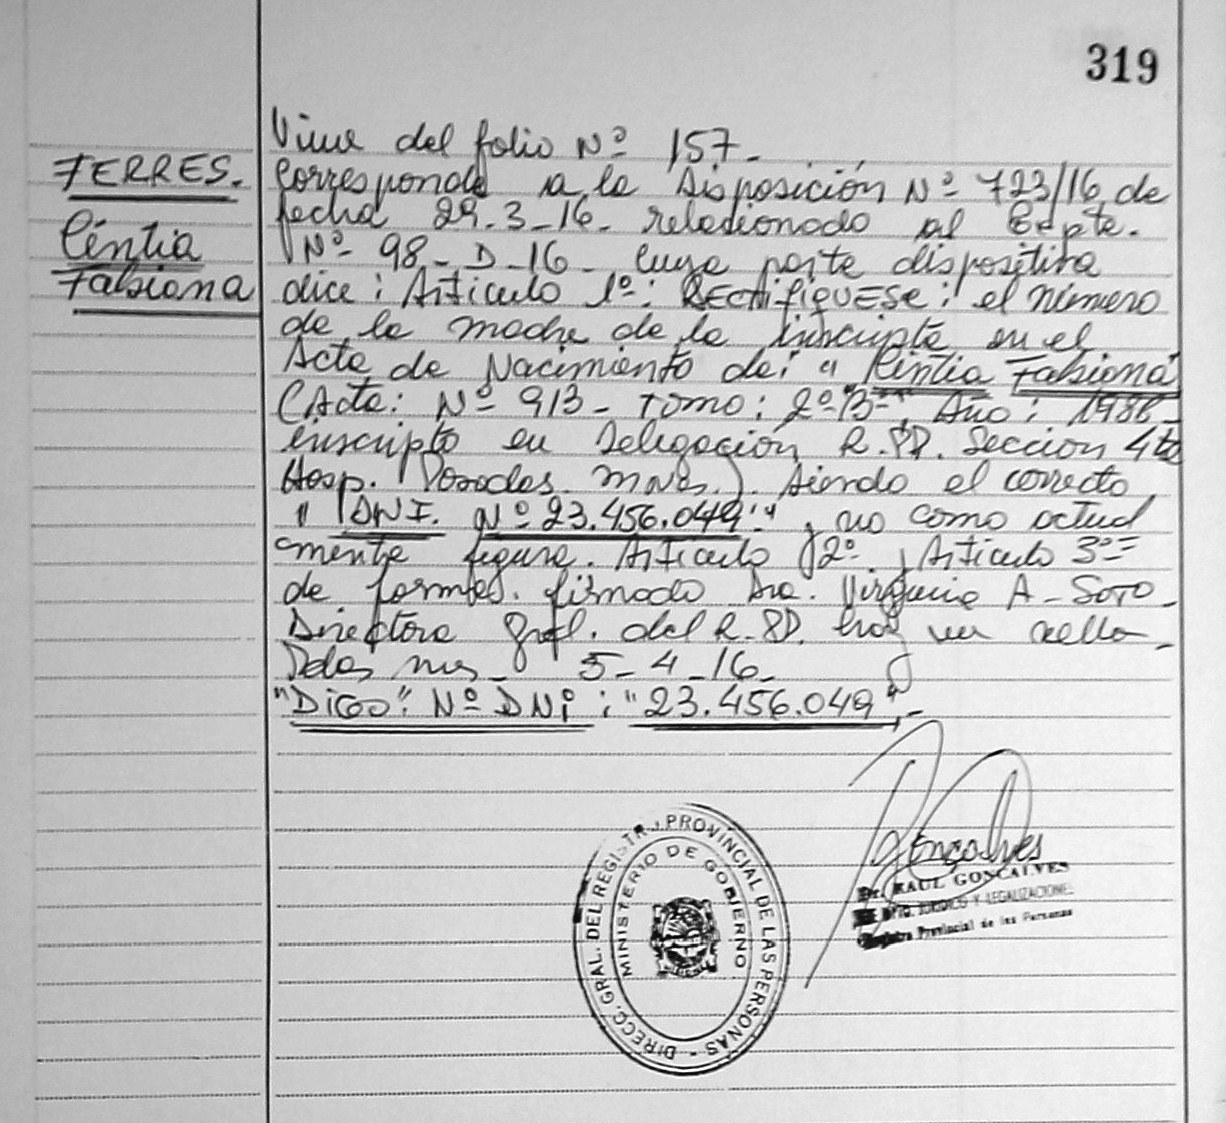 319
FERRES.
Cintia
Fabiana
Viene del folio Nº 157-
Corresponde a la Disposición Nº 723/16 de
fecha 29-3-16- relacionado al Expte.
Nº 98-D-16- cuya parte dispositiva
dice: Artículo 1º: RECTIFIQUESE: el número
de la madre de la inscripta en el
Acta de Nacimiento de: " Cintia Fabiana"
(Acta: Nº 913- Tomo: 2º Año: 1986-
inscripto en Delegación R.PP. Sección 4ta
Hosp. Posadas Mnes.). siendo el correcto
" DNI. Nº 23.456.049", no como actual
mente figura. Artículo 2º y Artículo 3º=
de formas. firmado Dra. Virginia A- SOTO-
Directora Gral. del R.PP. hay un sello-
Pdas mns- 5-4-16-
"DIGO": Nº DNI: "23.456.049"-
Goncalves
Dr. RAUL GONCALVES
DPTO. JURIDICO Y LEGALIZACIONES
Registro Provincial de las Personas
DIRECC. GRAL. DEL REGISTRO PROVINCIAL DE LAS PERSONAS -
MINISTERIO DE GOBIERNO